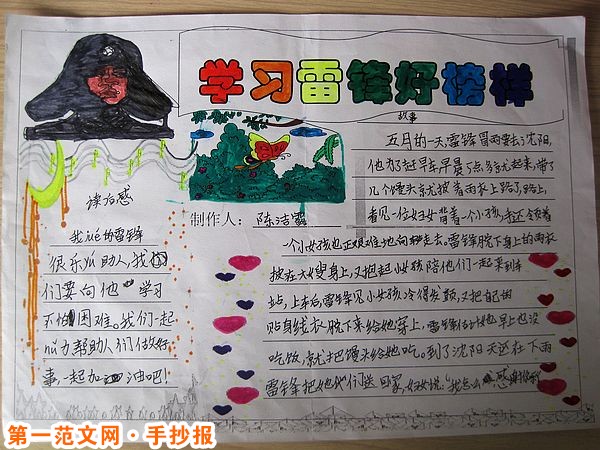 学习雷锋好榜样
故事
五月的一天,雷锋冒雨要去沈阳,
他为了赶早车早晨5点多就起来,带了
几个馒头就披着雨衣上路了,路上,
看见一位妇女背着一个小孩,手还领着
一个小女孩也正艰难地向走去。雷锋脱下身上的雨衣
披在大嫂身上,又抱起小女孩陪他们一起来到车
站,上车后,雷锋见小女孩冷得发颤,又把自己
贴身线衣脱下来给她穿上,雷锋估计她早上也没
吃饭,就把馒头给她吃。到了沈阳天还在下雨
雷锋把她们送回家,妇女说:“我怎么感谢你
读后感
我的雷锋
很乐以助人,我
们要向他学习
不怕困难。我们一起
心力帮助人们做好
事,一起加油吧!
制作人:陈洁
第一范文网·手抄报